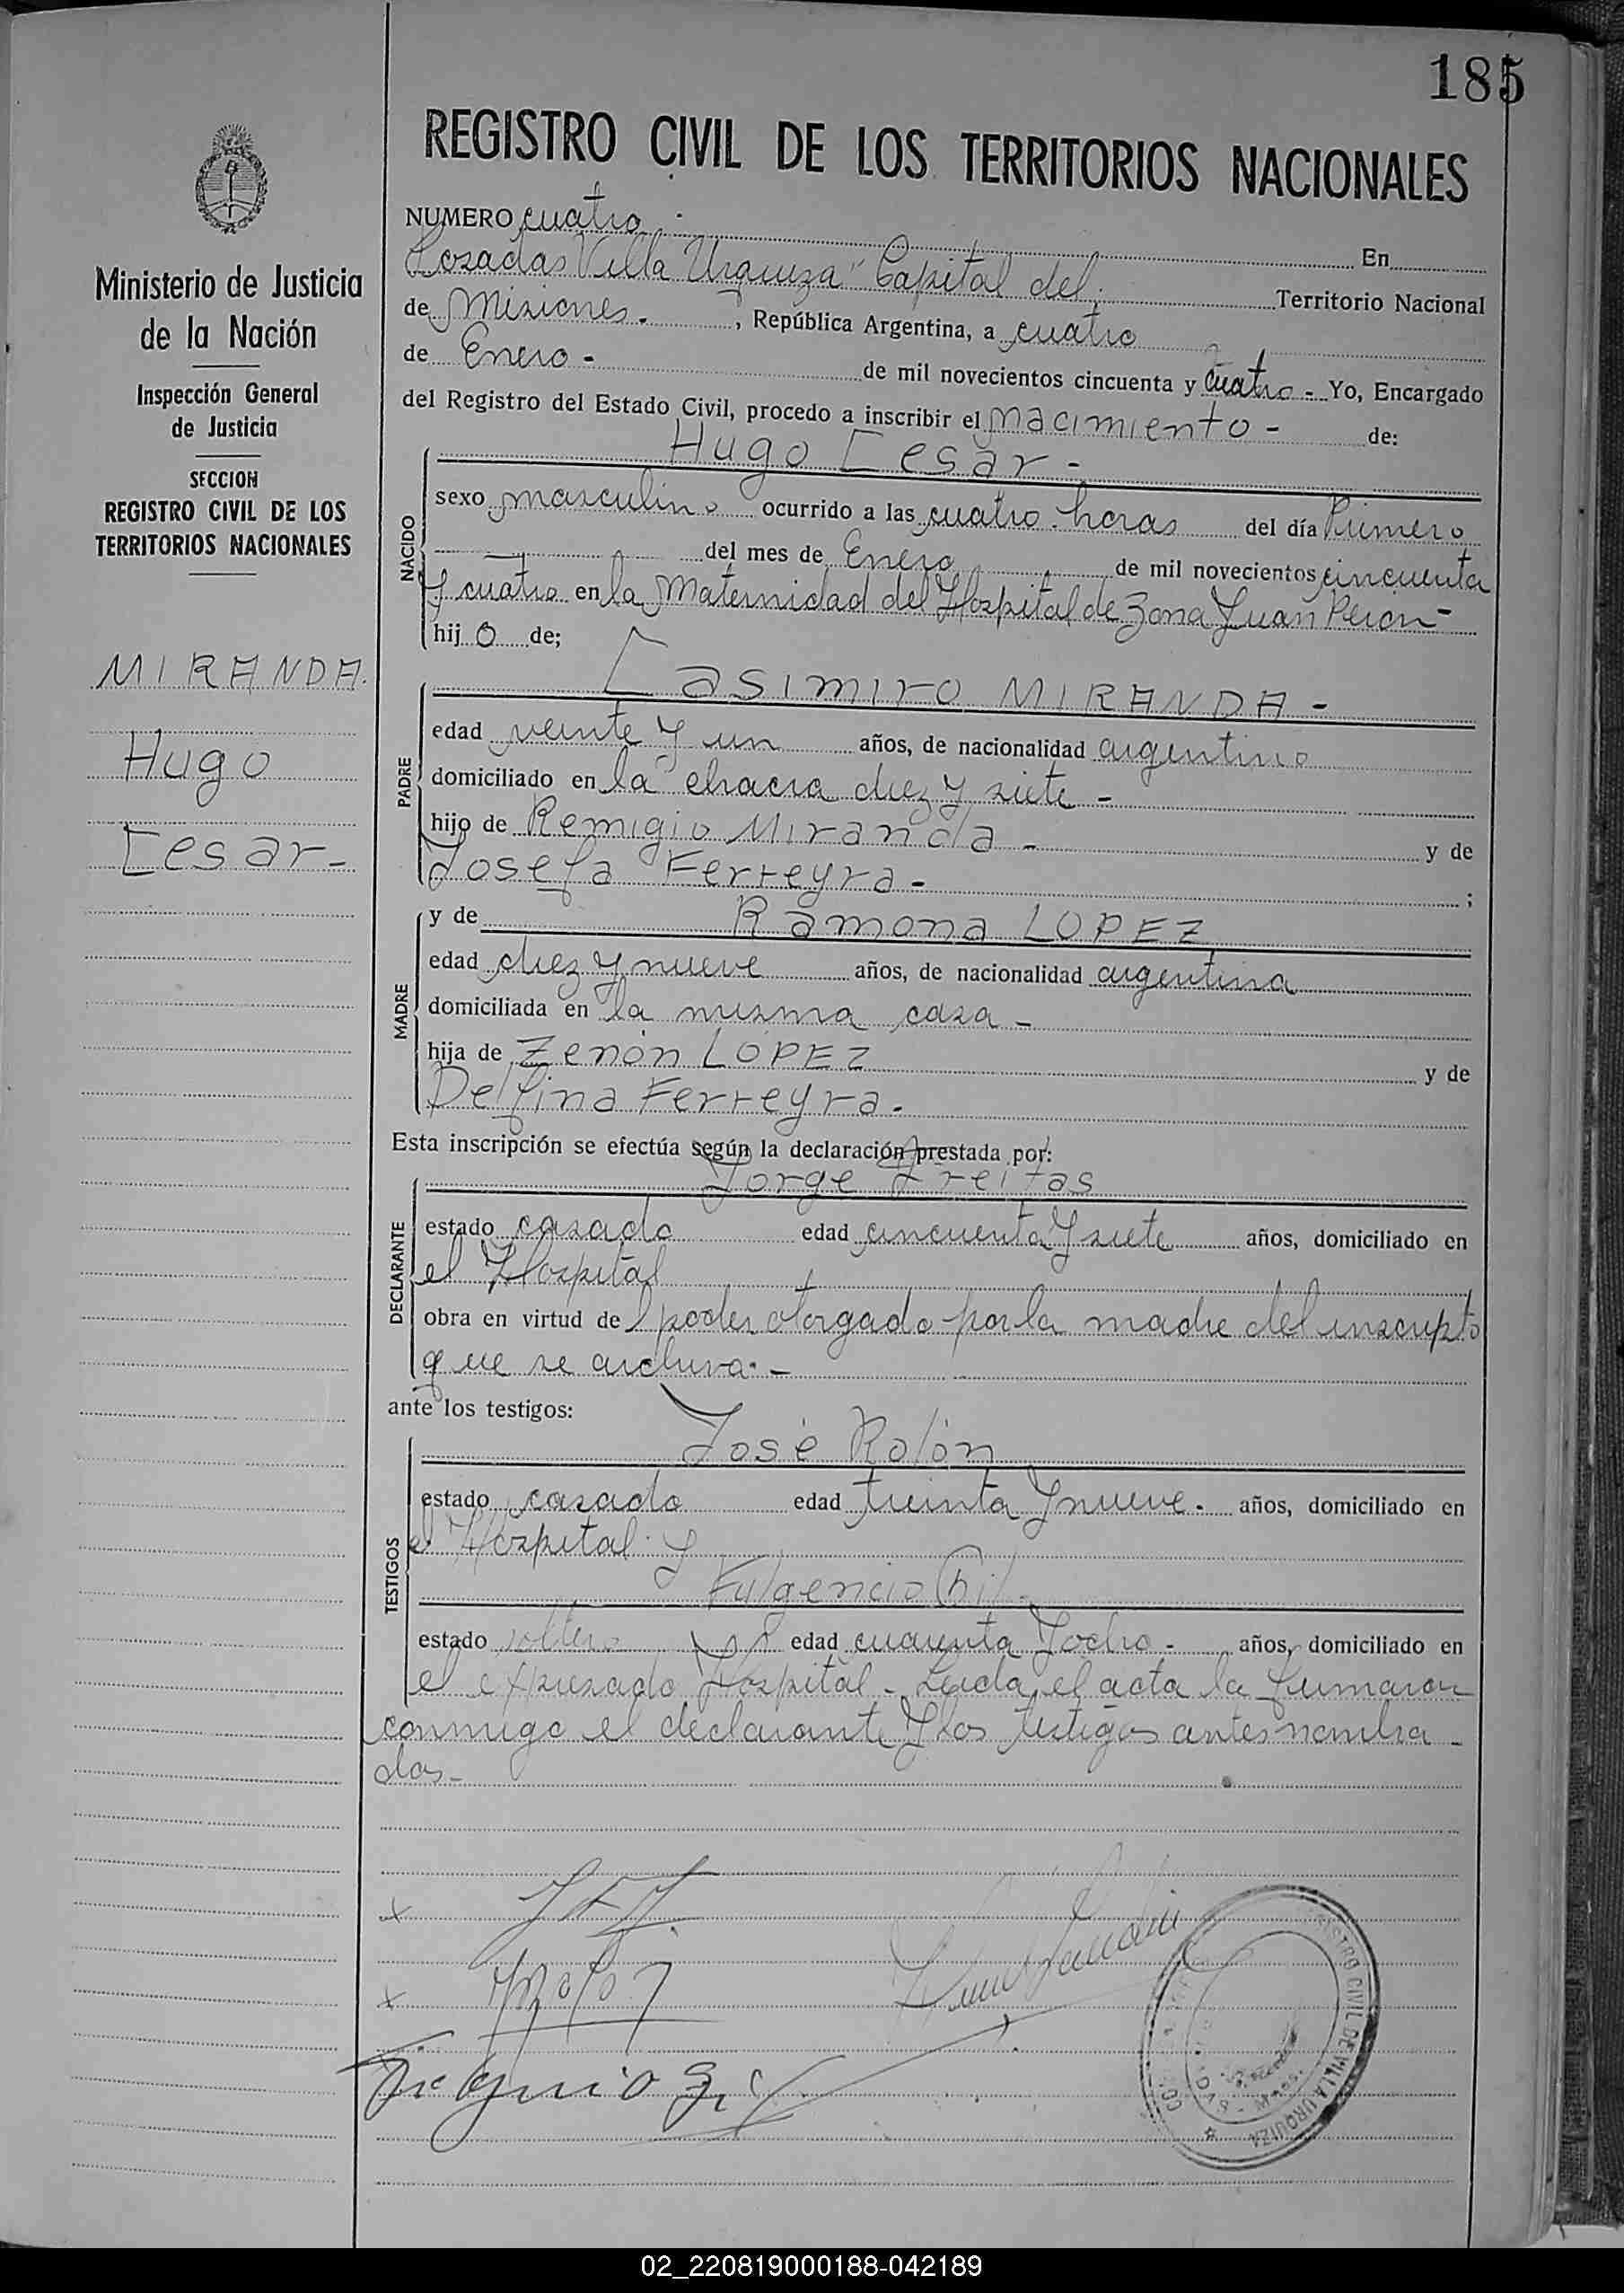 185
REGISTRO CIVIL DE LOS TERRITORIOS NACIONALES
Ministerio de Justicia
de la Nación
Inspección General
de Justicia
SECCION
REGISTRO CIVIL DE LOS
TERRITORIOS NACIONALES
MIRANDA.
Hugo
Cesar-
NUMERO cuatro. En
Posadas Villa Urquiza" Capital del. Territorio Nacional
de Misiones. , República Argentina, a cuatro
de Enero - de mil novecientos cincuenta y cuatro - Yo, Encargado
del Registro del Estado Civil, procedo a inscribir el nacimiento - de:
Hugo Cesar -
NACIDO
sexo masculino ocurrido a las cuatro horas del día Primero
del mes de Enero de mil novecientos cincuenta
y cuatro en la Maternidad del Hospital de Zona Juan Peron -
hijo de;
Casimiro MIRANDA -
PADRE
edad veinte y un años, de nacionalidad argentino
domiciliado en la chacra diez y siete -
hijo de Remigio Miranda - y de
Josefa Ferreyra - ;
MADRE
y de Ramona LOPEZ
edad diez y nueve años, de nacionalidad argentina
domiciliada en la misma casa -
hija de Zenón LOPEZ y de
Delfina Ferreyra.
Esta inscripción se efectúa según la declaración prestada por:
Jorge Freitas
DECLARANTE
estado casado edad cincuenta y siete años, domiciliado en
el Hospital
obra en virtud del poder otorgado por la madre del inscripto
que se archiva. -
ante los testigos:
José Rolón
TESTIGOS
estado casado edad treinta y nueve. años, domiciliado en
el Hospital y
Fulgencio Gil
estado soltero edad cuarenta y ocho - años, domiciliado en
el expresado Hospital - Leida el acta la firmaron
conmigo el declarante y los testigos antes nombra -
dos -
REGISTRO CIVIL DE VILLA URQUIZA
02_220819000188-042189